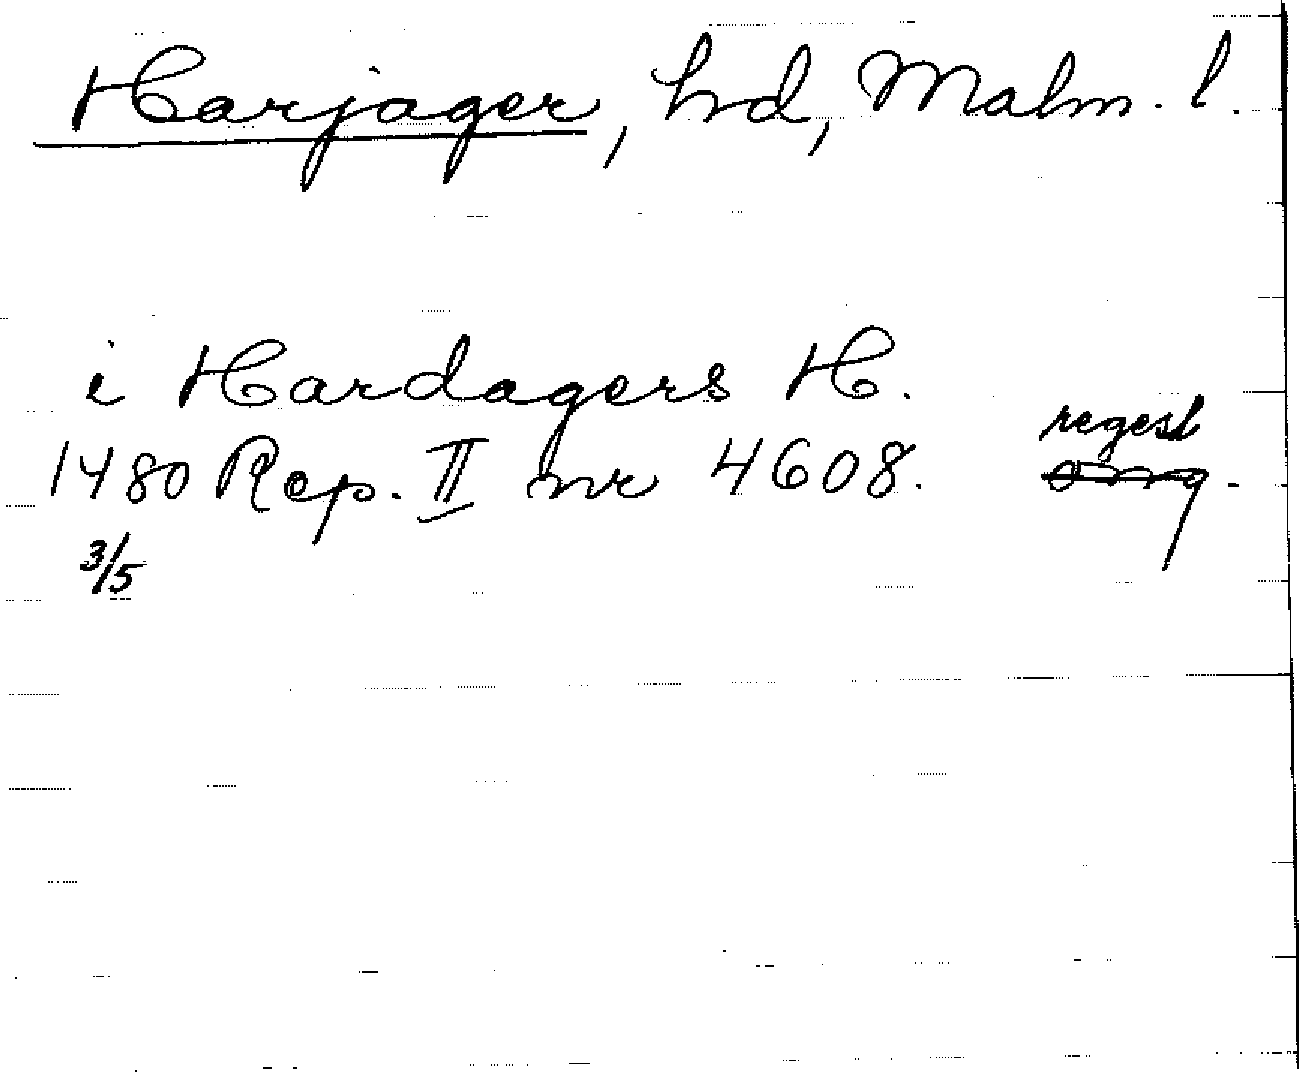 Harjager, hd, Malm. l.
i Hardagers H.
regest
1480 Rep. II nr 4608. omg.
3/5